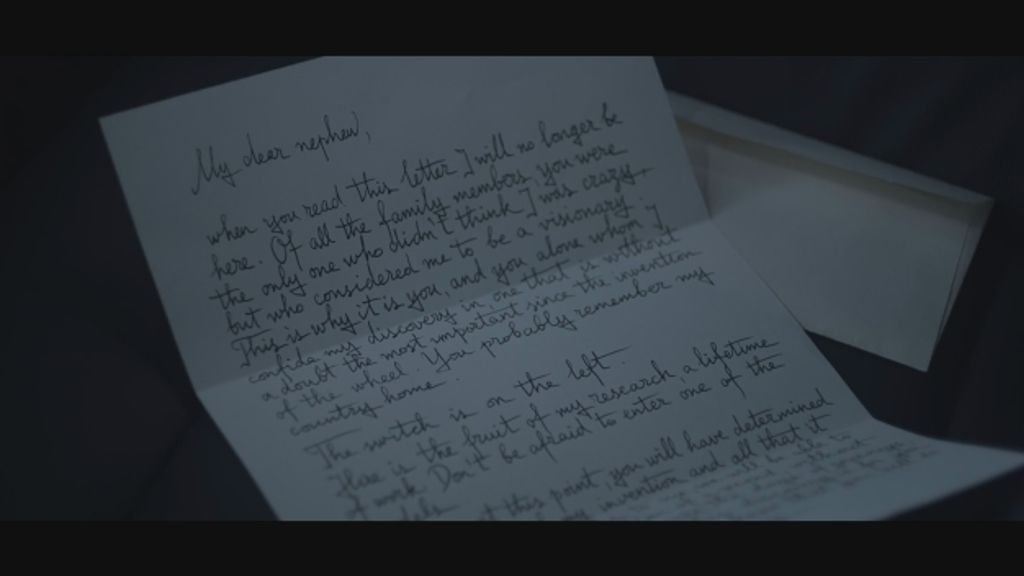 My dear nephew,
when you read this letter I will no longer be
here. Of all the family members, you were
the only one who didn't think I was crazy
but who considered me to be a visionary.
This is why it is you, and you alone whom I
confide my discovery in one that is without
a doubt the most important since the invention
of the wheel. You probably remember my
country home.
The switch is on the left.
Here is the fruit of my research, a lifetime
of work. Don't be afraid to enter one of the
at this point, you will have determined
my invention and all that it